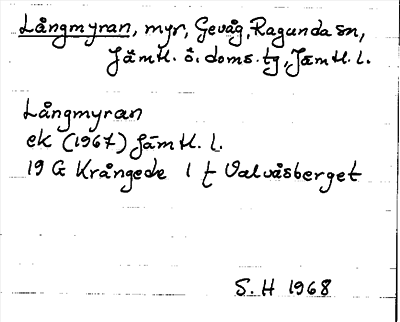 Långmyran, myr, Gevåg, Ragunda sn,
Jämtl. ö. doms. tg, Jämtl. l.
Långmyran
ek (1967) Jämtl. l.
19 G Krångede 1 t Valvåsberget
S. H 1968